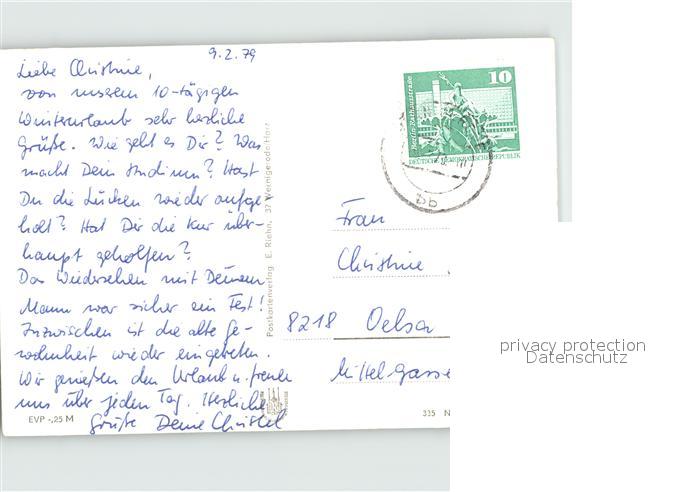 9.2.79
Liebe Christine,
von unserem 10-tägigen
Winterurlaub sehr herzliche
Grüße. Wie geht es Dir? Was
macht Dein Studium? Hast
Du die Lücken wieder aufge-
holt? Hat Dir die Kur über-
haupt geholfen?
Das Wiedersehen mit Deinem
Mann war sicher ein Fest!
Inzwischen ist die alte Ge-
wohnheit wieder eingetreten.
Wir genießen den Urlaub u. freuen
uns über jeden Tag. Herzliche
Grüße Deine Christel
EVP -,25 M
Postkartenverlag E. Riehn, 37 Wernigerode/Harz
10
Berlin-Rathausstraße
DEUTSCHE DEMOKRATISCHE REPUBLIK
bb
Frau
Christine
8218 Oelsa
Mittel-Gasse
335 N
privacy protection
Datenschutz